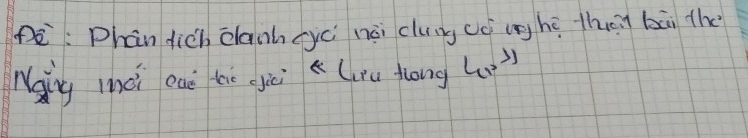 Đề: Phân tích đánh giá nội dung và nghệ thuật bài thơ
Ngày mới của tác giả "Lưu trọng Lư"